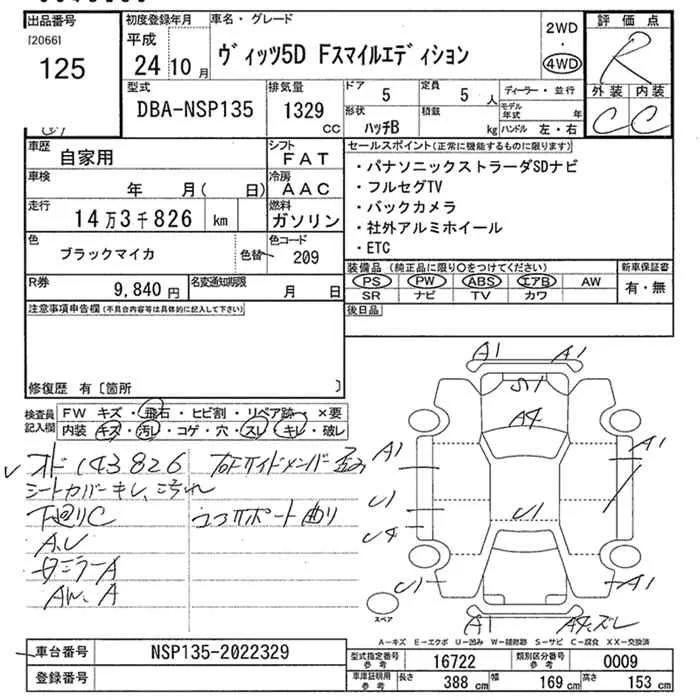 出品番号
[2066]
125
初度登録年月
平成
24年10月
車名・グレード
ヴィッツ5D Fスマイルエディション
2WD
・
4WD
評価点
R
外装 内装
C C
型式
DBA-NSP135
排気量
1329
CC
ドア 5
定員 5 人
形状 ハッチB
積載 kg
ディーラー・並行
モデル年式 年
ハンドル 左・右
車歴 自家用
シフト FAT
車検 年 月( 日)
冷房 AAC
走行 14万3千826 km
燃料 ガソリン
色 ブラックマイカ
色替
色コード 209
R券 9,840円
名変通知期限 月 日
セールスポイント(正常に機能するものに限ります)
・パナソニックストラーダSDナビ
・フルセグTV
・バックカメラ
・社外アルミホイール
・ETC
装備品(純正品に限り○をつけてください)
PS PW ABS エアB AW
SR ナビ TV カワ
新車保証書
有・無
後日品
注意事項申告欄(不具合内容等は具体的に記入して下さい)
修復歴 有〔箇所 〕
検査員記入欄
FW キズ・飛石・ヒビ割・リペア跡・×要
内装 キズ・汚レ・コゲ・穴・スレ・キレ・破レ
オド143826
シートカバーキレ、汚れ
下廻りC
A.U
タミラーA
AW.A
右Fサイドメンバー歪み
コアサポート曲り
A1 A1
S1
A4
A1 A1
U1
U4
U1
U1 A1
A1 A4.ズレ
スペア
A-キズ E-エクボ U-凹み W-補修跡 S-サビ C-腐食 XX-交換済
車台番号 NSP135-2022329
登録番号
型式指定番号 参考 16722
類別区分番号 参考 0009
車庫証明用 参考 長さ 388 cm 幅 169 cm 高さ 153 cm